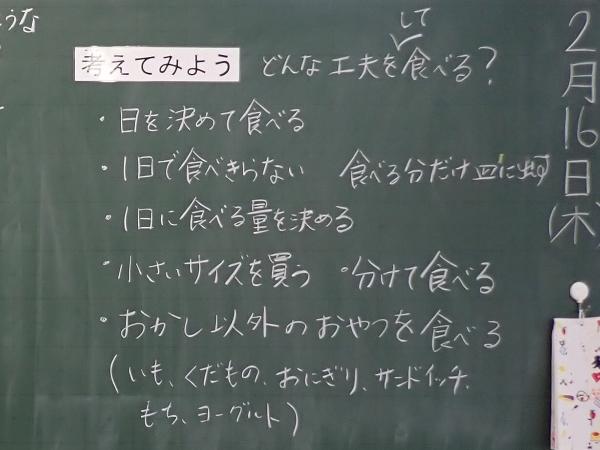 うな
考えてみよう どんな工夫を食べる?
して
・日を決めて食べる
・1日で食べきらない 食べる分だけ皿に出す
・1日に食べる量を決める
・小さいサイズを買う ・分けて食べる
・おかし以外のおやつを食べる
(いも、くだもの、おにぎり、サンドイッチ、
もち、ヨーグルト)
2月16日(木)